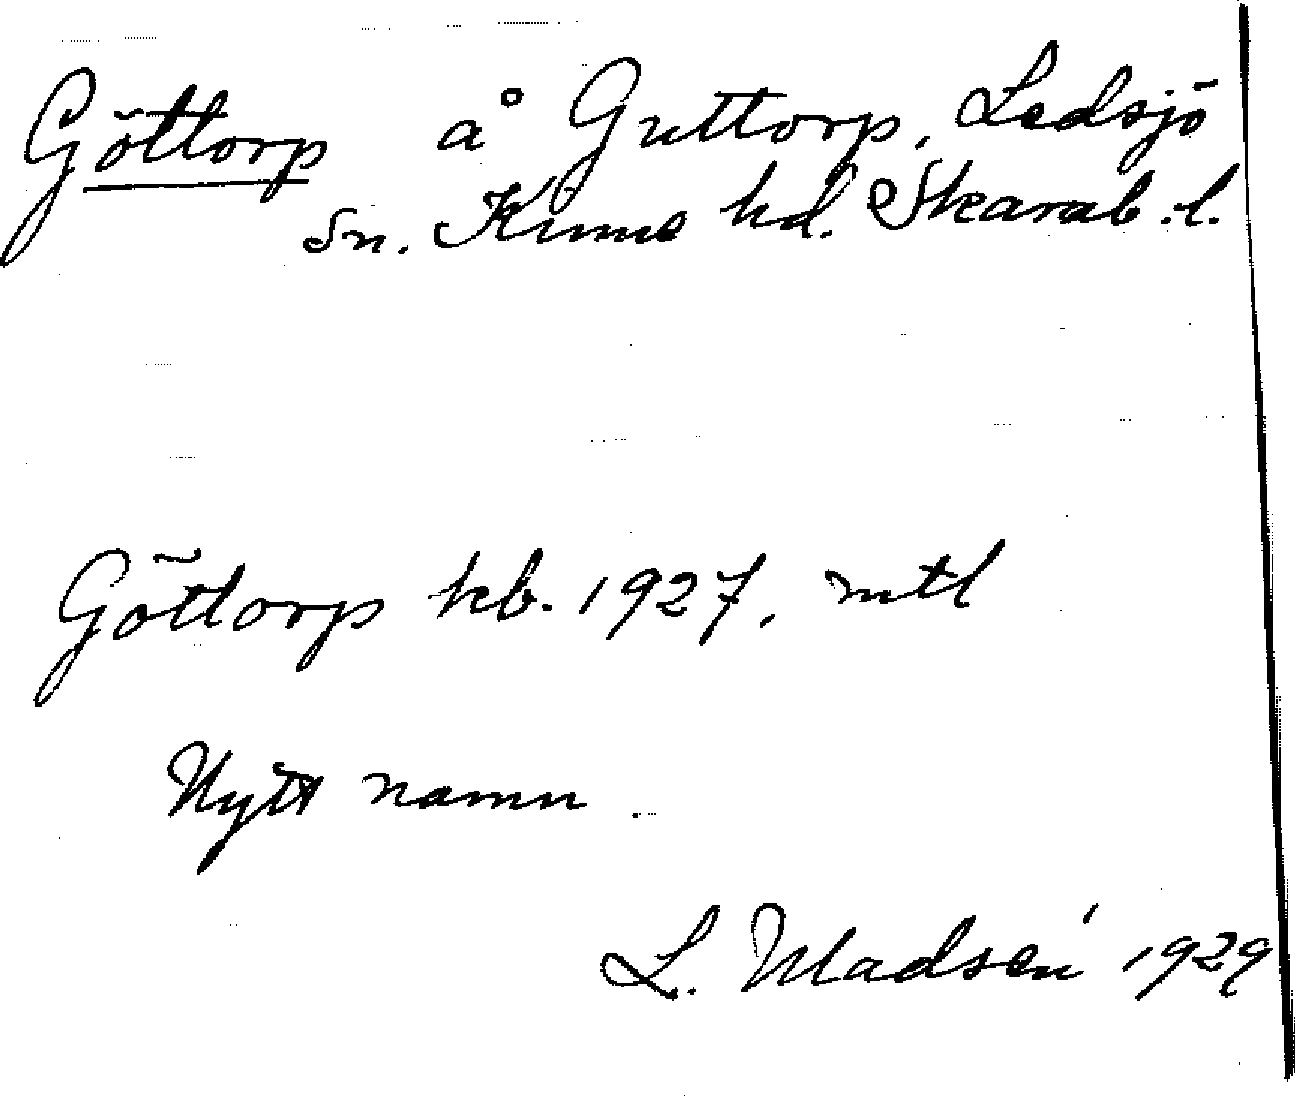 Göttorp å Guttorp, Ledsjö
sn. Kinne hd. Skarab. l.
Göttorp kb. 1927, mtl
Nytt namn
L. Madsén 1929